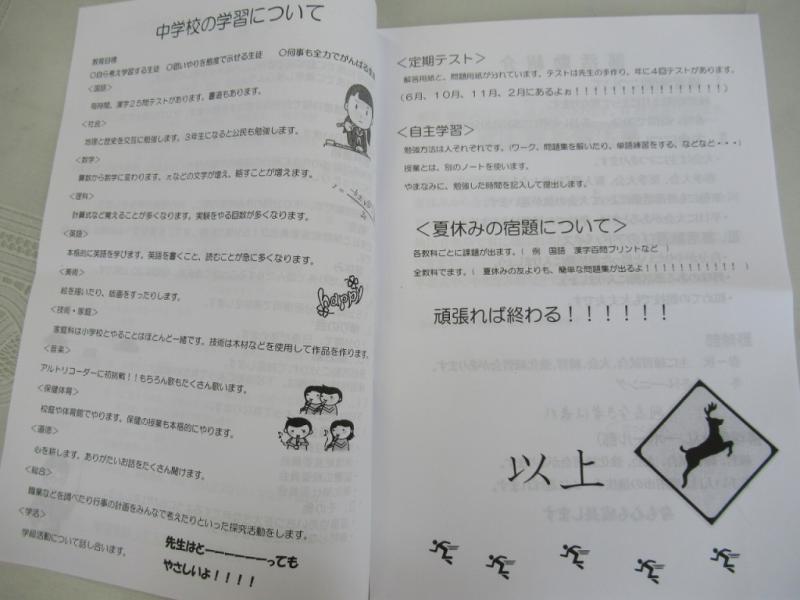 中学校の学習について
教育目標
○自ら考え学習する生徒 ○思いやりを態度で示せる生徒 ○何事も全力でがんばる生徒
＜国語＞
毎時間、漢字25問テストがあります。書道もあります。
＜社会＞
地理と歴史を交互に勉強します。3年生になると公民も勉強します。
＜数学＞
算数から数学に変わります。πなどの文字が増え、略すことが増えます。
＜理科＞
計算式など覚えることが多くなります。実験をやる回数が多くなります。
＜英語＞
本格的に英語を学びます。英語を書くこと、読むことが急に多くなります。
＜美術＞
絵を描いたり、版画をすったりします。
happy!
＜技術・家庭＞
家庭科は小学校とやることはほとんど一緒です。技術は木材などを使用して作品を作ります。
＜音楽＞
アルトリコーダーに初挑戦！！もちろん歌もたくさん歌います。
＜保健体育＞
校庭や体育館でやります。保健の授業も本格的にやります。
＜道徳＞
心を耕します。ありがたいお話をたくさん聞けます。
＜総合＞
職業などを調べたり行事の計画をみんなで考えたりといった探究活動をします。
＜学活＞
学級活動について話し合います。
先生はと—————っても
やさしいよ！！！！
＜定期テスト＞
解答用紙と、問題用紙が分れています。テストは先生の手作り、年に4回テストがあります。
（6月、10月、11月、2月にあるよぉ！！！！！！！！！！！！！！！！）
＜自主学習＞
勉強方法は人それぞれです。（ワーク、問題集を解いたり、単語練習をする、などなど・・・）
授業とは、別のノートを使います。
やまなみに、勉強した時間を記入して提出します。
＜夏休みの宿題について＞
各教科ごとに課題が出ます。（ 例 国語 漢字百問プリントなど ）
全教科でます。（ 夏休みの友よりも、簡単な問題集が出るよ！！！！！！！！！！！ ）
頑張れば終わる！！！！！！
以上